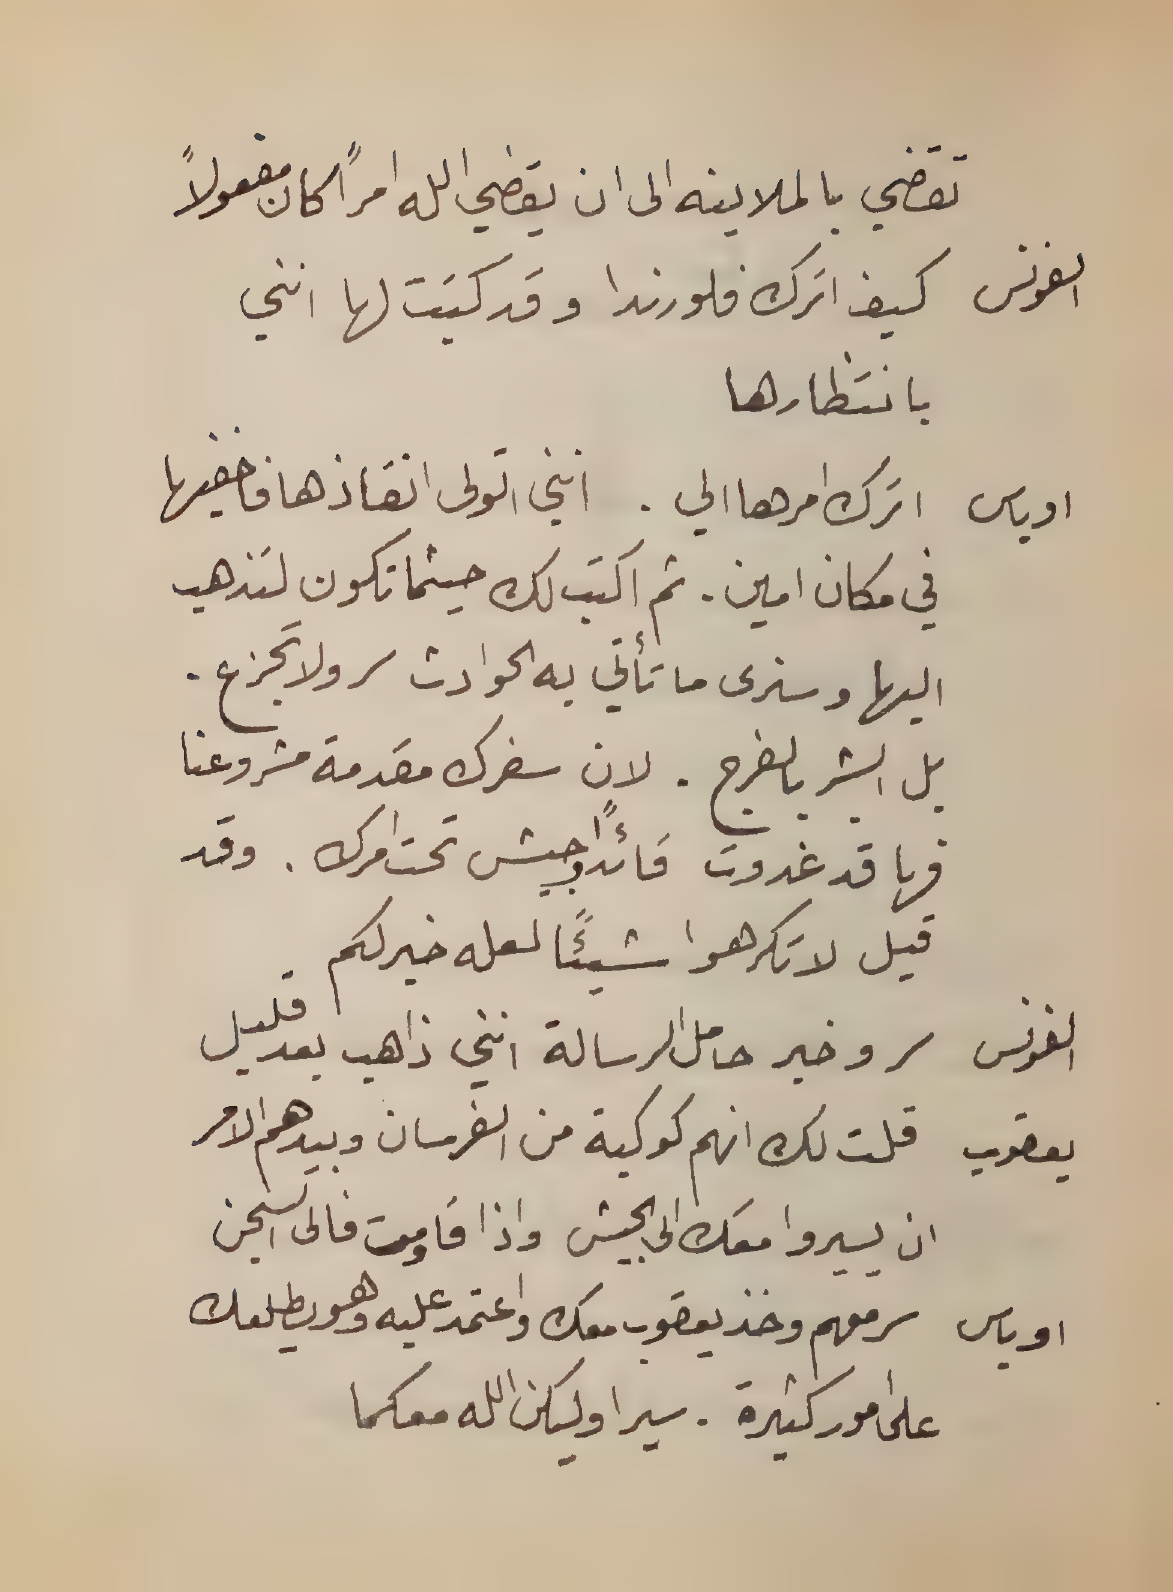 تقضي بالملاينه الى ان يقضي الله امراً كان مفعولاً
الفونس كيف اترك فلورندا وقد كتبت لها انني
بانتظارها
اوباس اترك امرها الي . انني اتولى انقاذها فاخفيها
في مكان امين . ثم اكتب لك حيثما تكون لتذهب
اليها وسنرى ما تأتي به الحوادث سر ولا تجزع .
بل ابشر بالفرج . لان سفرك مقدمة مشروعنا
فها قد غدوت قائداً وجيش تحت امرك . وقد
قيل لا تكرهوا شيئًا لعله خير لكم
الفونس سر وخبر حامل الرسالة انني ذاهب بعد قليل
يعقوب قلت لك انهم كوكبة من الفرسان وبيدهم الامر
ان يسيروا معك الى الجيش واذا قاومت فالى السجن
اوباس سر معهم وخذ يعقوب معك واعتمد عليه وهو يطلعك
على امور كثيرة . سيرا وليكن الله معكما